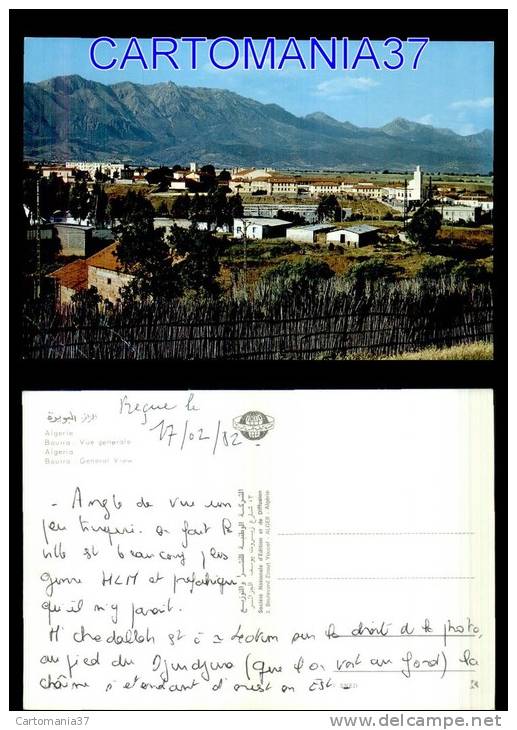 CARTOMANIA37
الجزائر - البويرة
Algérie
Bouira - Vue générale
Algeria
Bouira - General View
Reçue le
17/02/82
- Angle de vue un
peu truqué. En fait la
ville est beaucoup plus
genre HLM et préfabriqué
qu'il n'y paraît.
M'Chedallah est à sur la droite de la photo,
au pied du Djurdjura (que l'on voit au fond) la
chaîne s'étendant d'ouest en Est -
الشركة الوطنية للنشر والتوزيع
٣، شارع زيروت يوسف الجزائر
Société Nationale d'Edition et de Diffusion
3, Boulevard Zirout Youcef - ALGER - Algérie
Cartomania37
www.delcampe.net